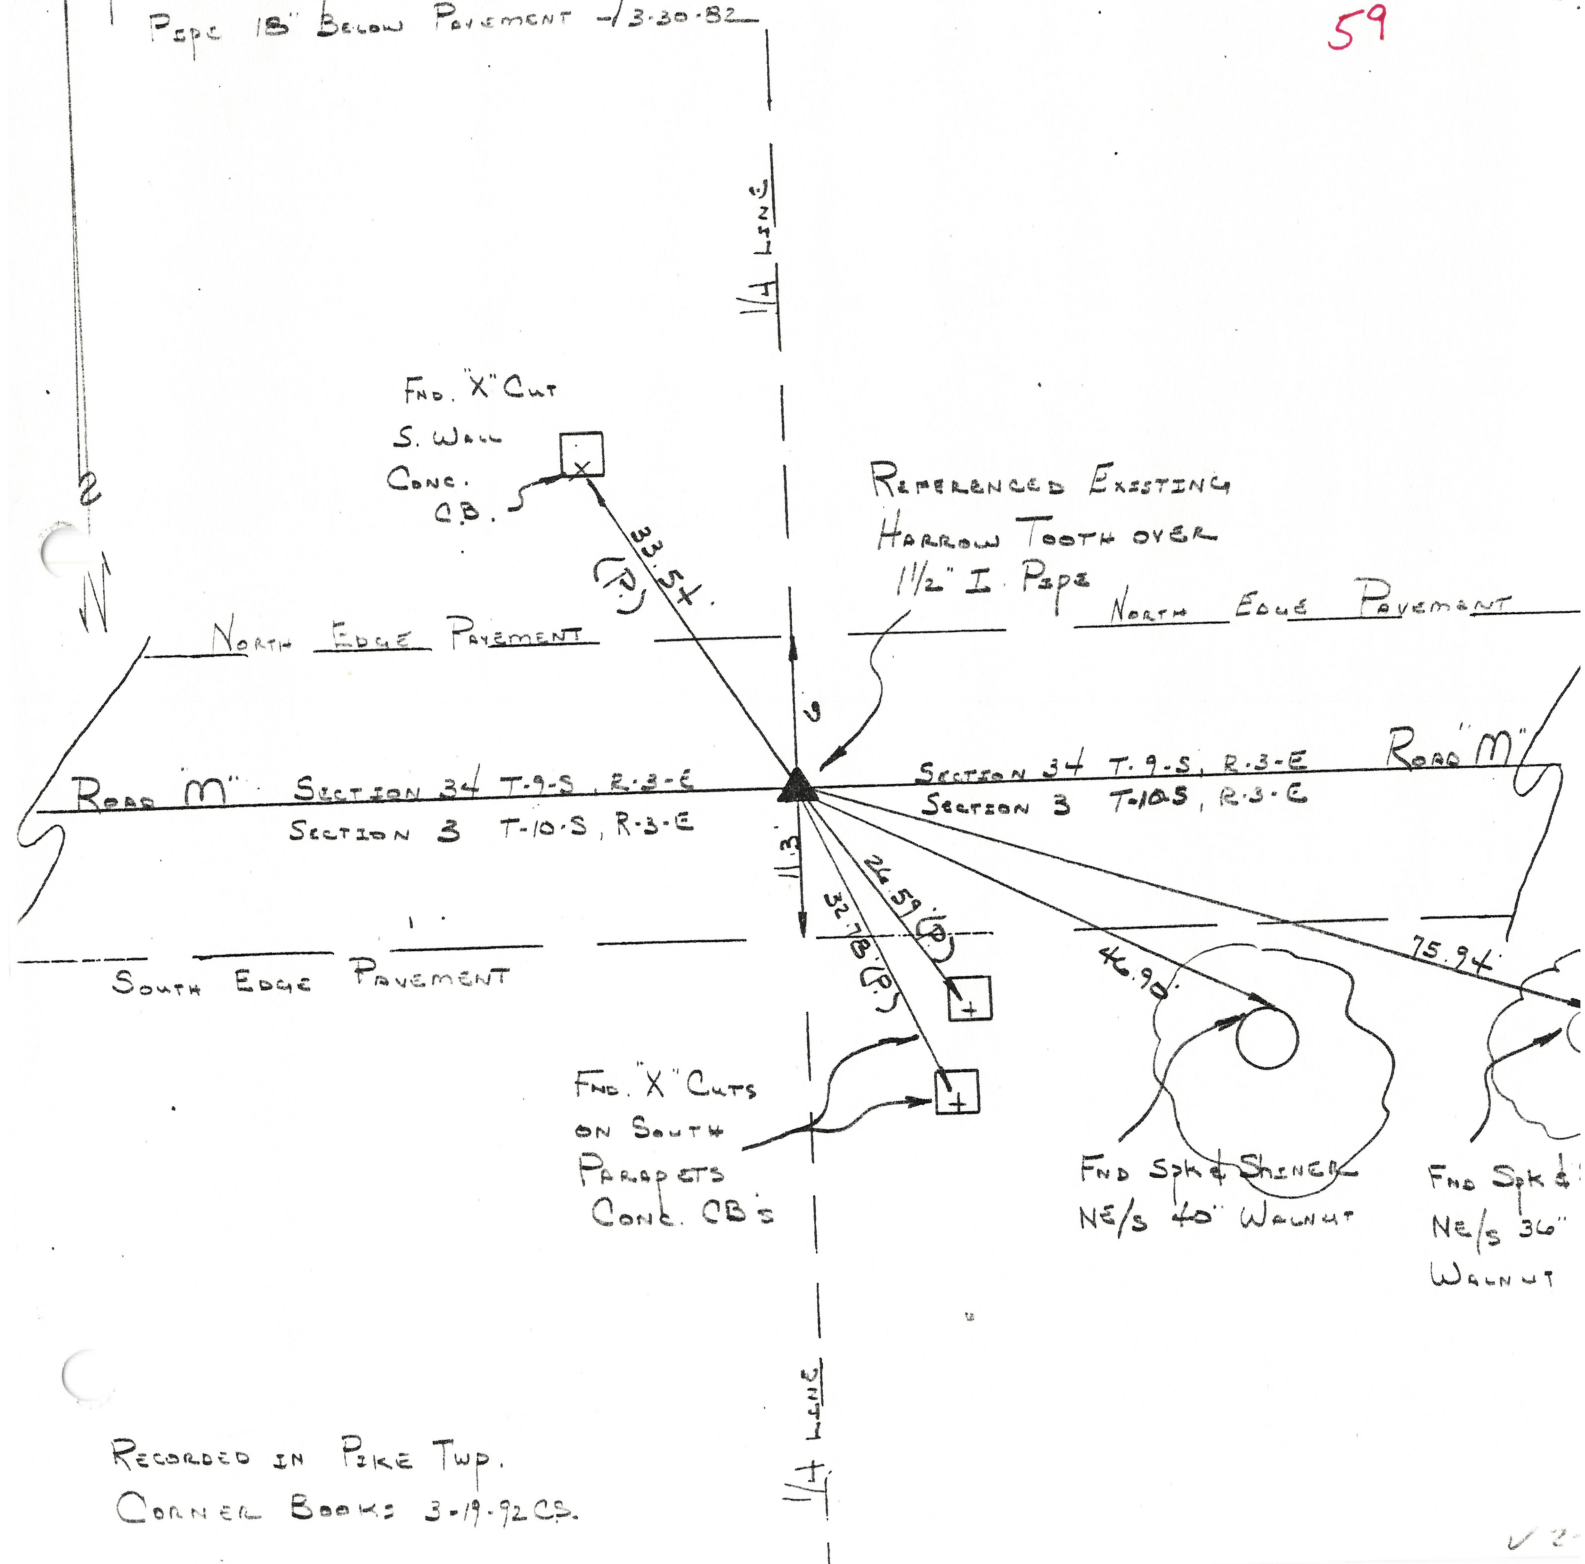 Pipe 18" Below Pavement - 3-30-82
59
1/4 Line
Fnd. "X" Cut
S. Wall
Conc.
C.B.
33.54'
(P.)
Referenced Existing
Harrow Tooth over
1 1/2" I. Pipe
N
North Edge Pavement
North Edge Pavement
9
Road "M" Section 34 T-9-S, R-3-E
Section 3 T-10-S, R-3-E
Section 34 T-9-S, R-3-E Road "M"
Section 3 T-10-S, R-3-E
11.3'
26.59' (P.)
32.78' (P.)
46.90'
75.94'
South Edge Pavement
Fnd. "X" Cuts
on South
Parapets
Conc. CB's
Fnd Spk & Shiner
NE/S 40" Walnut
Fnd Spk &
NE/S 36"
Walnut
1/4 Line
Recorded in Pike Twp.
Corner Books 3-19-92 C.S.